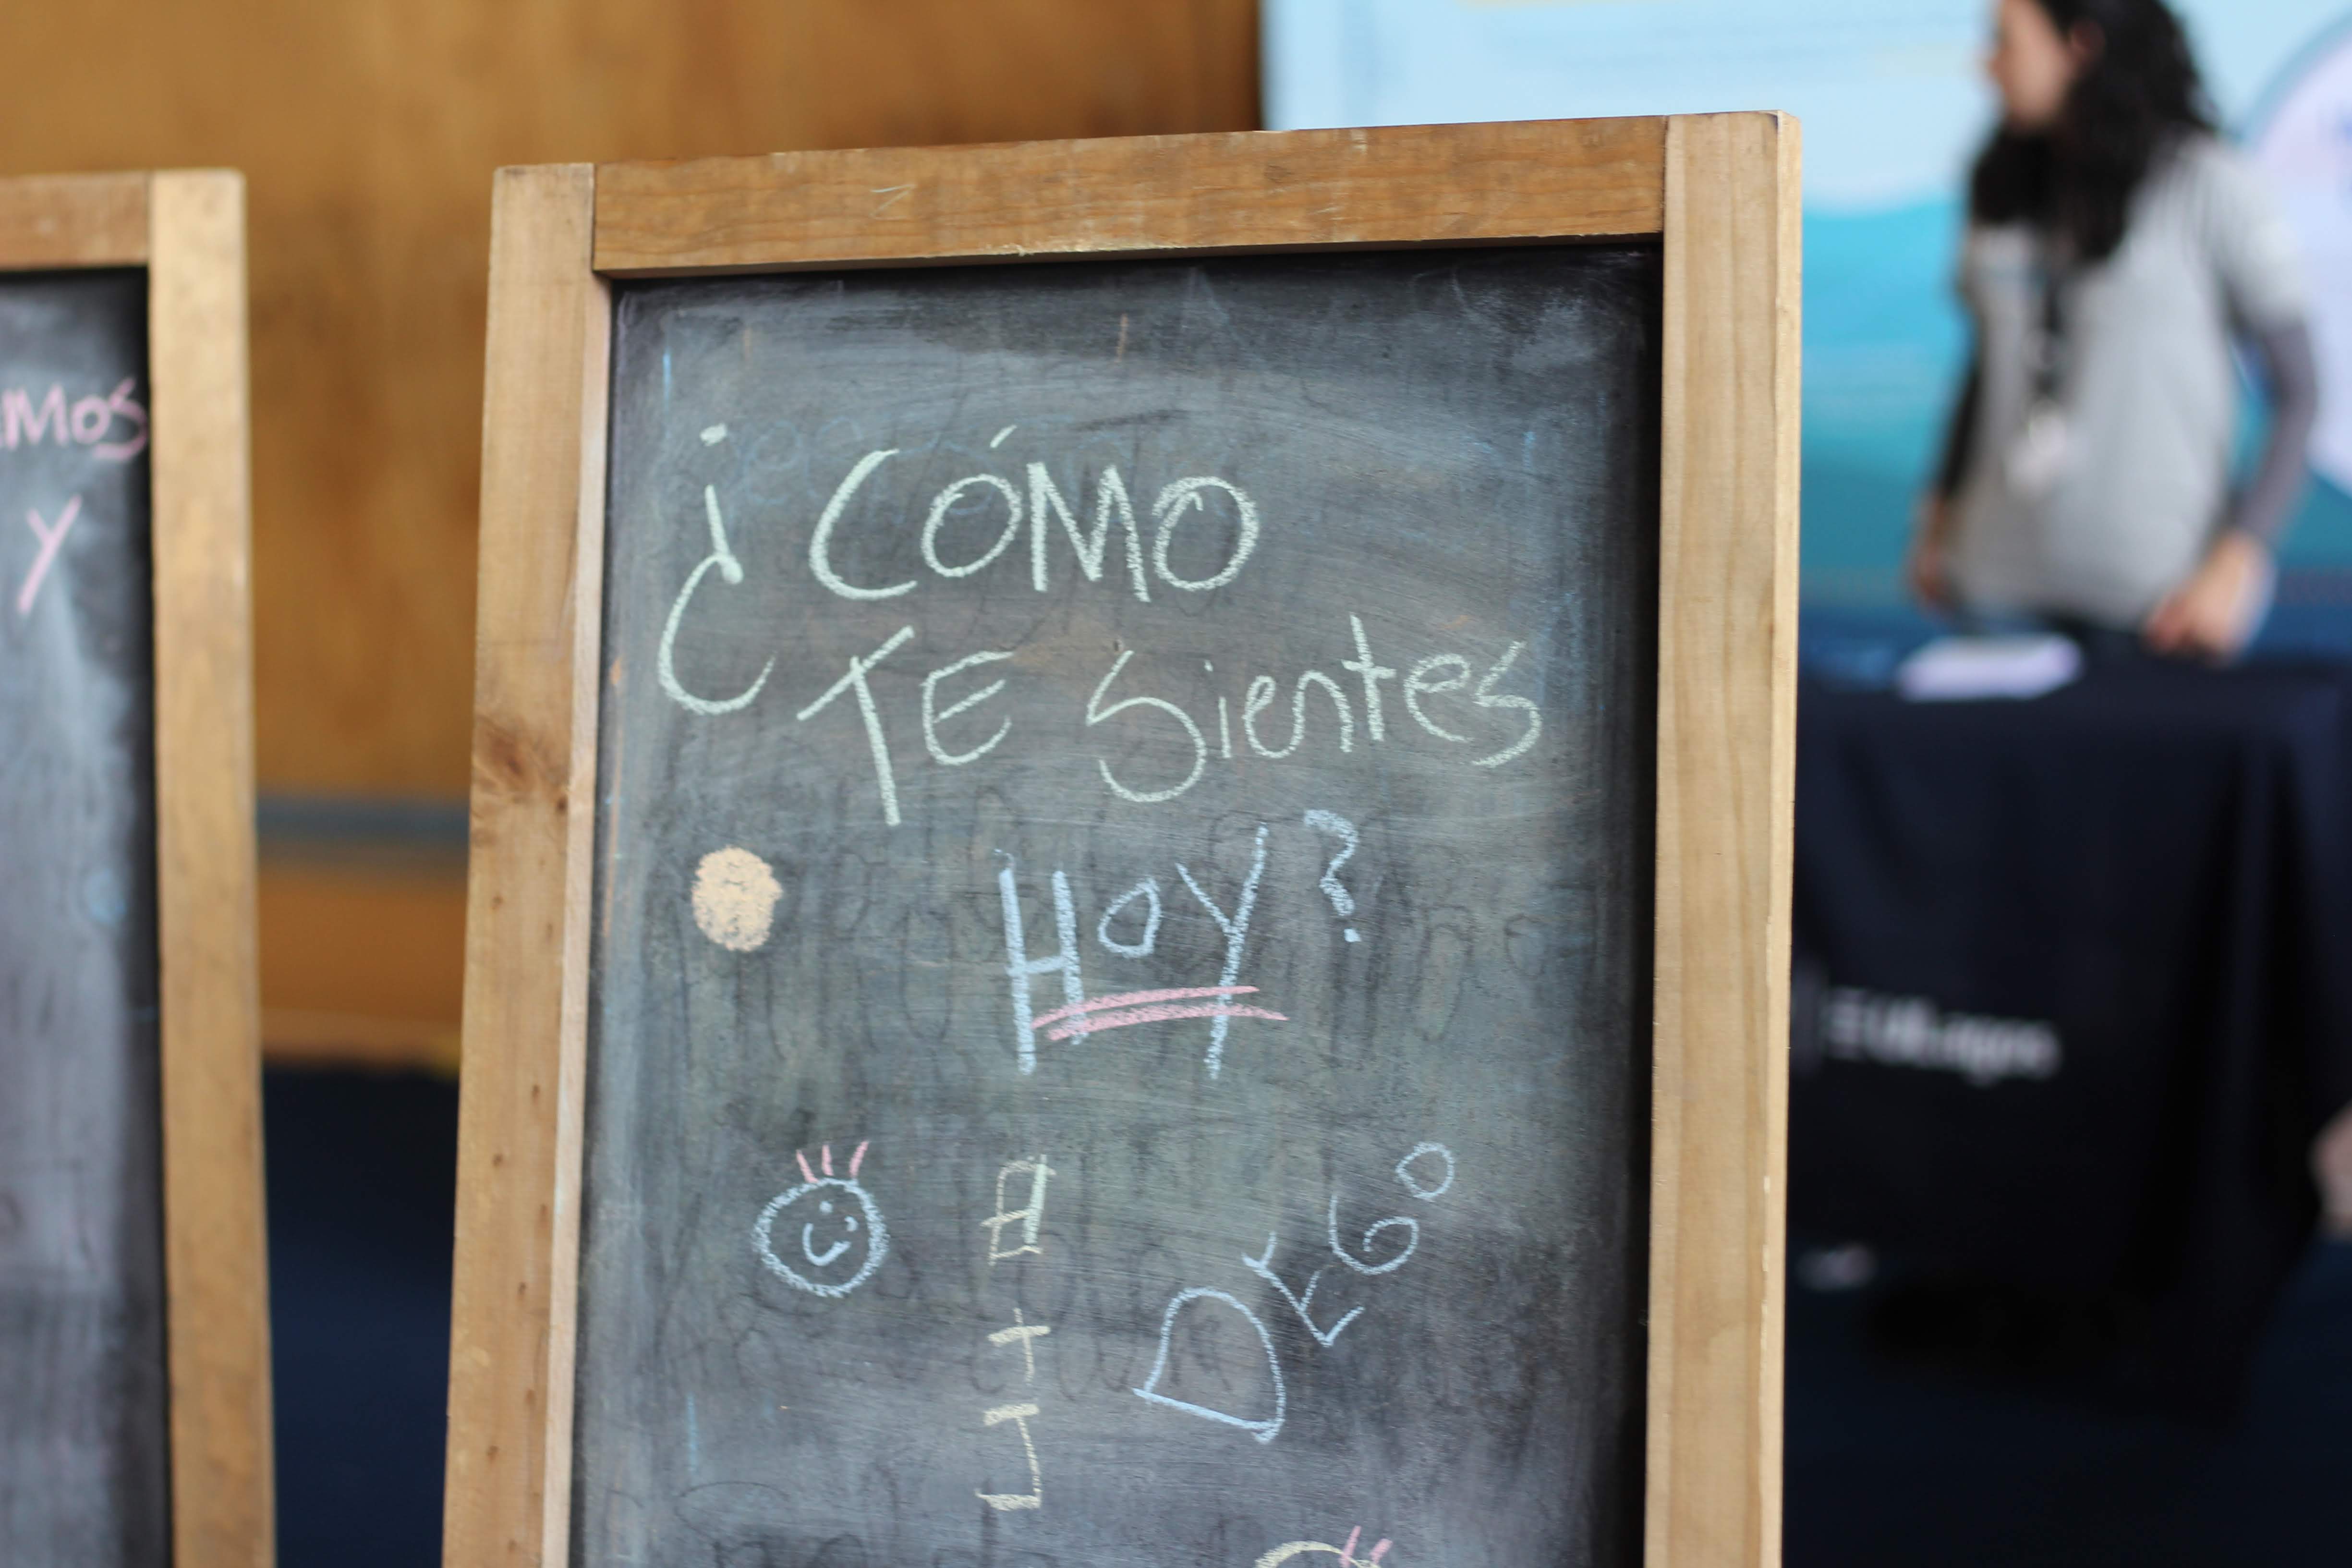 AMOS
Y
¿CÓMO
TE Sientes
HOY?
DEGO